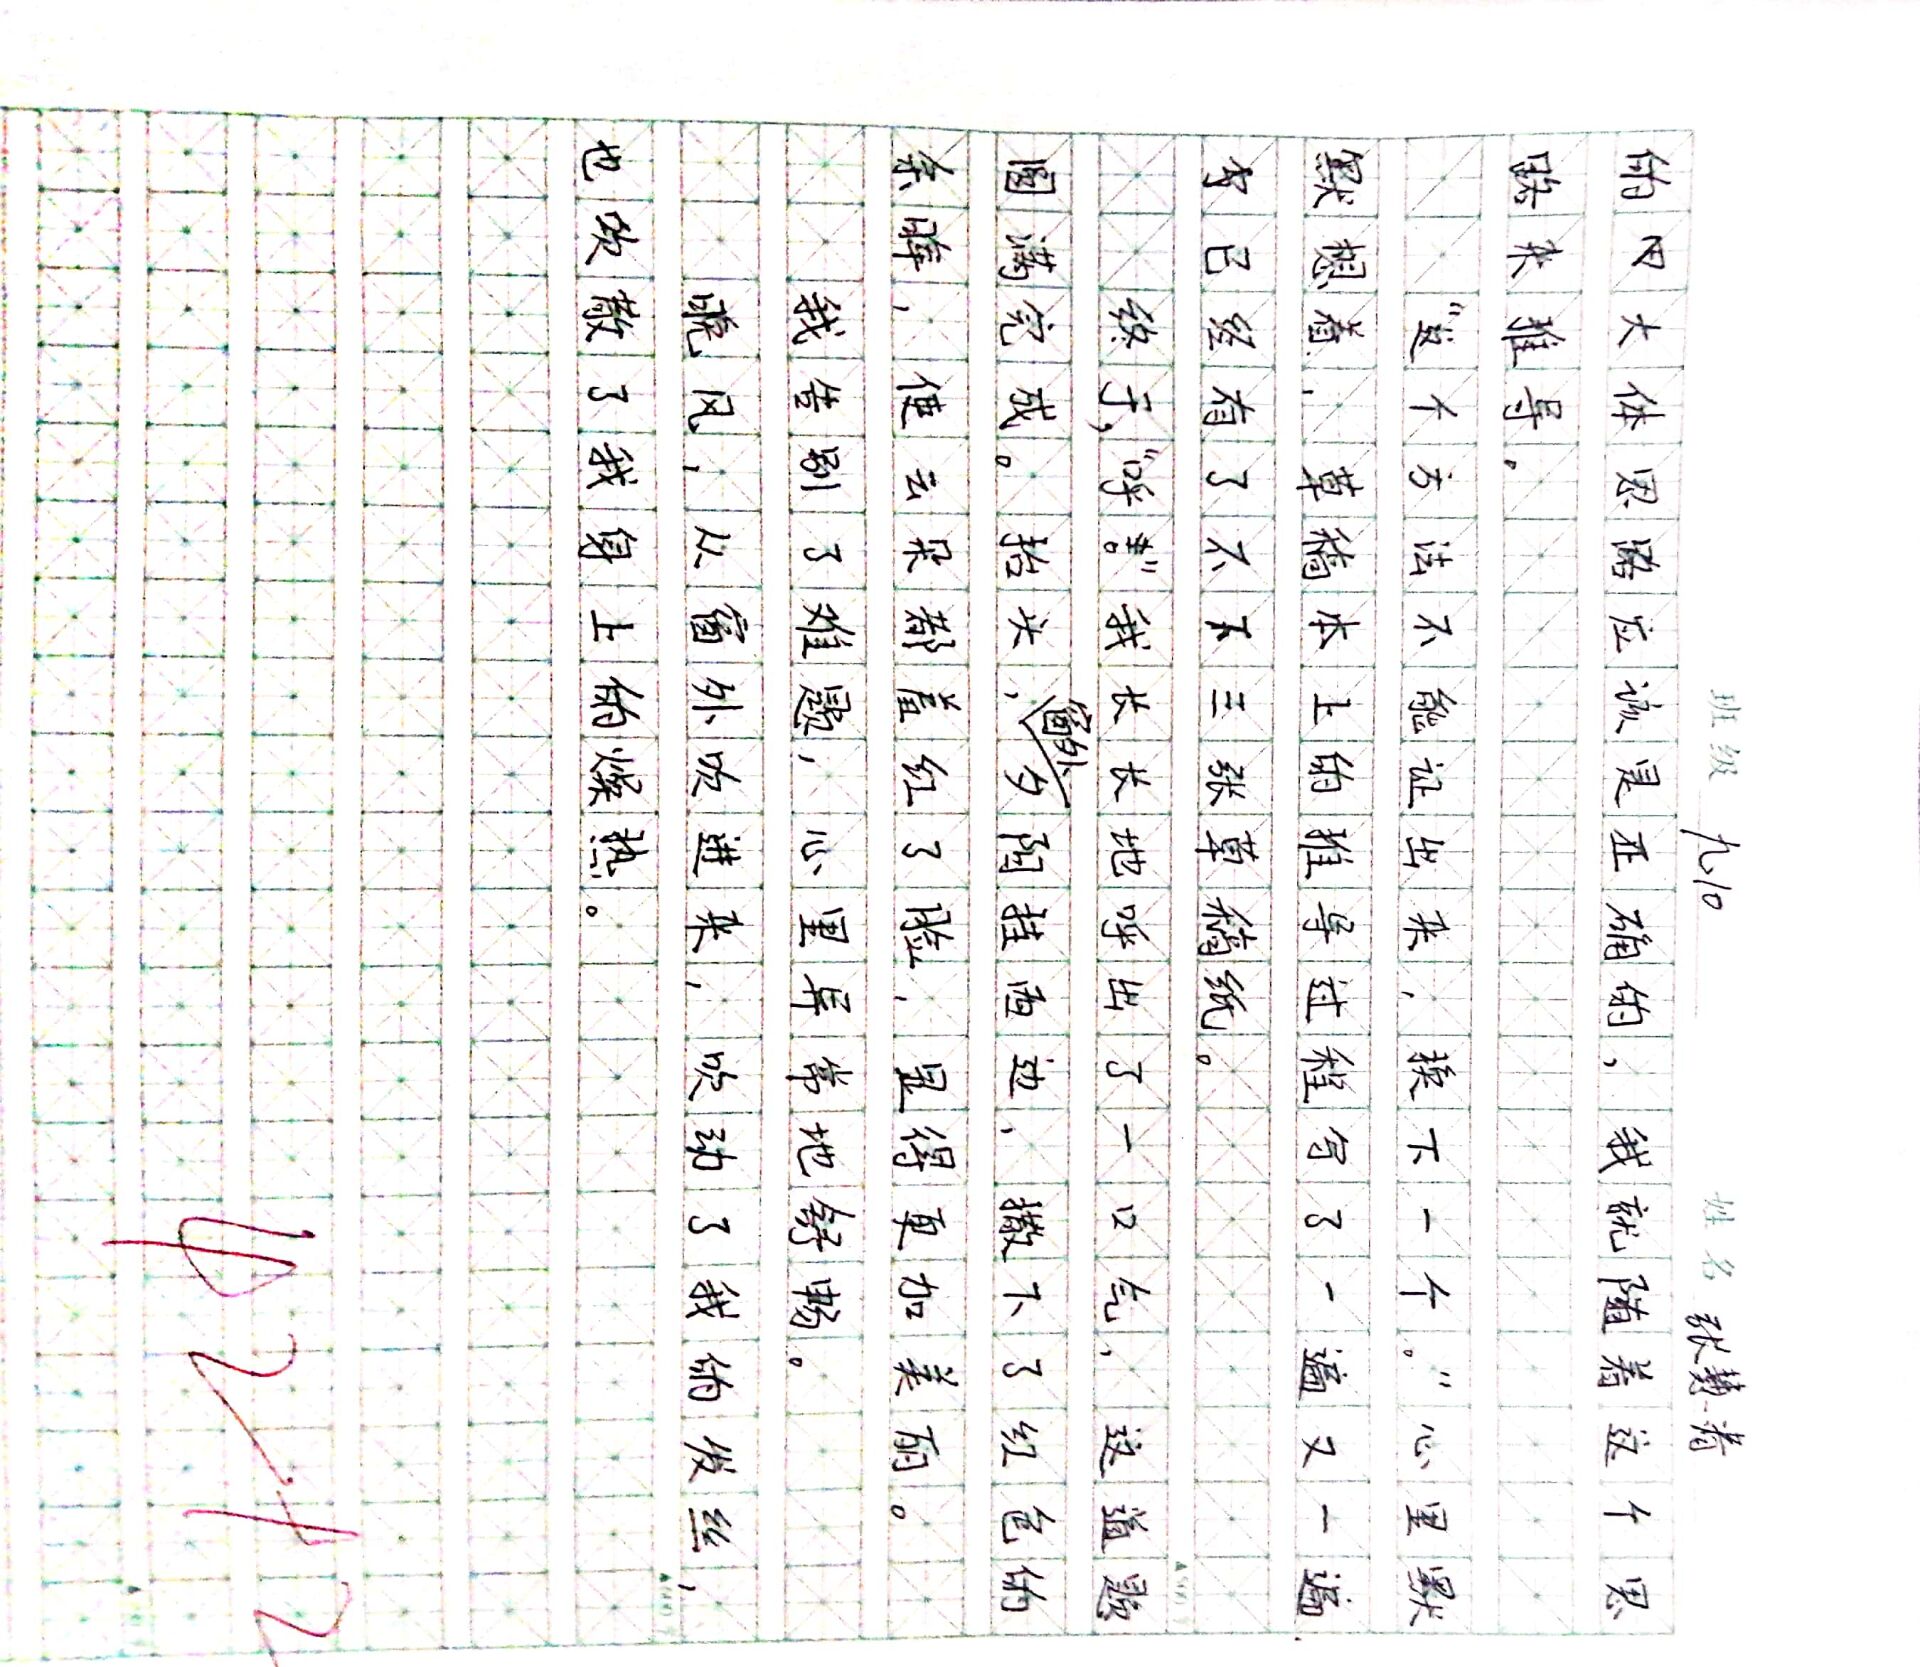 班级 九10 姓名 张慧清
的内大体思路应该是正确的，我就随着这个思
路来推导。
“这个方法不能证出来，换下一个。”心里默
默想着，草稿本上的推导过程写了一遍又一遍
才已经有了不下三张草稿纸。
终于，“呼！”我长长地呼出了一口气，这道题
圆满完成。抬头，窗外夕阳挂西边，撒下了红色的
余晖，使云朵都羞红了脸，显得更加美丽。
我告别了难题，心里异常地舒畅。
晚风，从窗外吹进来，吹动了我的发丝，
也吹散了我身上的燥热。